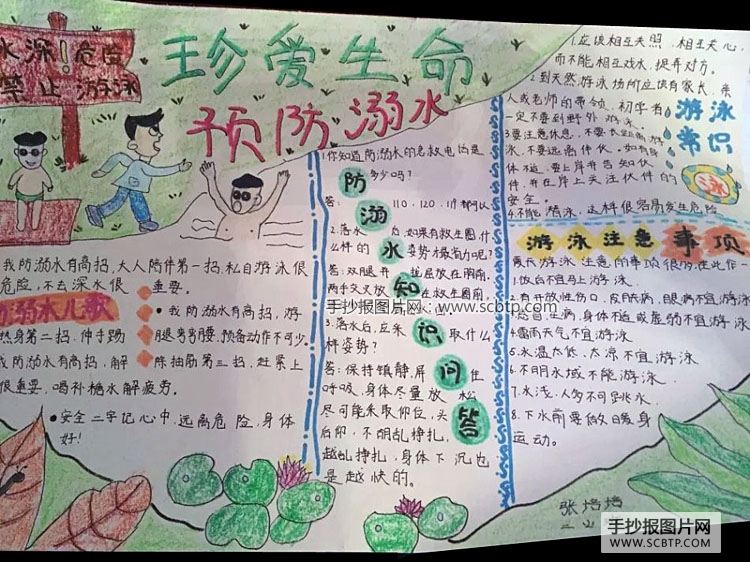 水深!危险
禁止游泳
珍爱生命
预防溺水
我防溺水有高招,大人陪伴第一招,私自游泳很
危险,不去深水很重要。
防溺水儿歌
我防溺水有高招,游
热身第二招,伸手踢腿弯弯腰,预备动作不可少。
我防溺水有高招,解除抽筋第三招,赶紧上
很重要,喝补糖水解疲劳。
安全二字记心中,远离危险,身体
好!
防溺水知识问答
1.你知道防溺水的急救电话是
多少吗?
答:110.120.119都可以
2.落水后如果有救生圈,什
么样的姿势最省力呢?
答:双腿并拢屈放在胸前,
两手交叉放在救生圈前,
3.落水后,应采取什么
样姿势?
答:保持镇静,屏住
呼吸,身体尽量放松
尽可能采取仰位,头
后仰,不胡乱挣扎,
越乱挣扎,身体下沉也
是越快的。
1.应该相互关照,相互关心,
而不能相互戏水,捉弄对方。
2.到天然游泳场所应该有家长、亲
人或老师的带领,初学者
一定不要到野外游泳。
3.要注意休息,不要长距离游
泳,不要远离伙伴,如有身
体不适,要上岸并告知伙
伴,并在岸上关注伙伴的
安全。
4.不能潜泳,这样很容易发生危险
游泳
常识
泳
游泳注意事项
1.饭后不宜马上游泳。
2.有开放性伤口、皮肤病、眼病不宜游泳
3.感冒、生病、身体不适或虚弱不宜游泳
4.雷雨天气不宜游泳
5.水温太低、太凉不宜游泳
6.不明水域不能游泳
7.水浅、人多不可跳水
8.下水前要做暖身
运动。
手抄报图片网:www.scbtp.com
手抄报图片网
WWW.SCBTP.COM